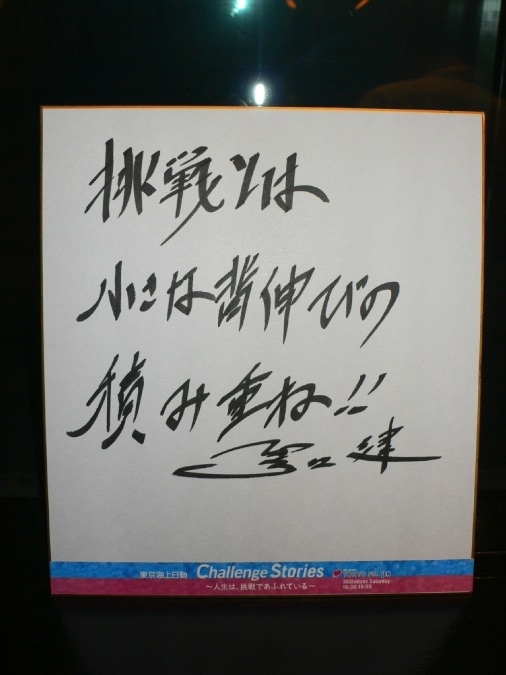 挑戦とは
小さな背伸びの
積み重ね!!
野口健
東京海上日動 Challenge Stories
～人生は、挑戦であふれている～
TOKYO FM
38Stations Saturday